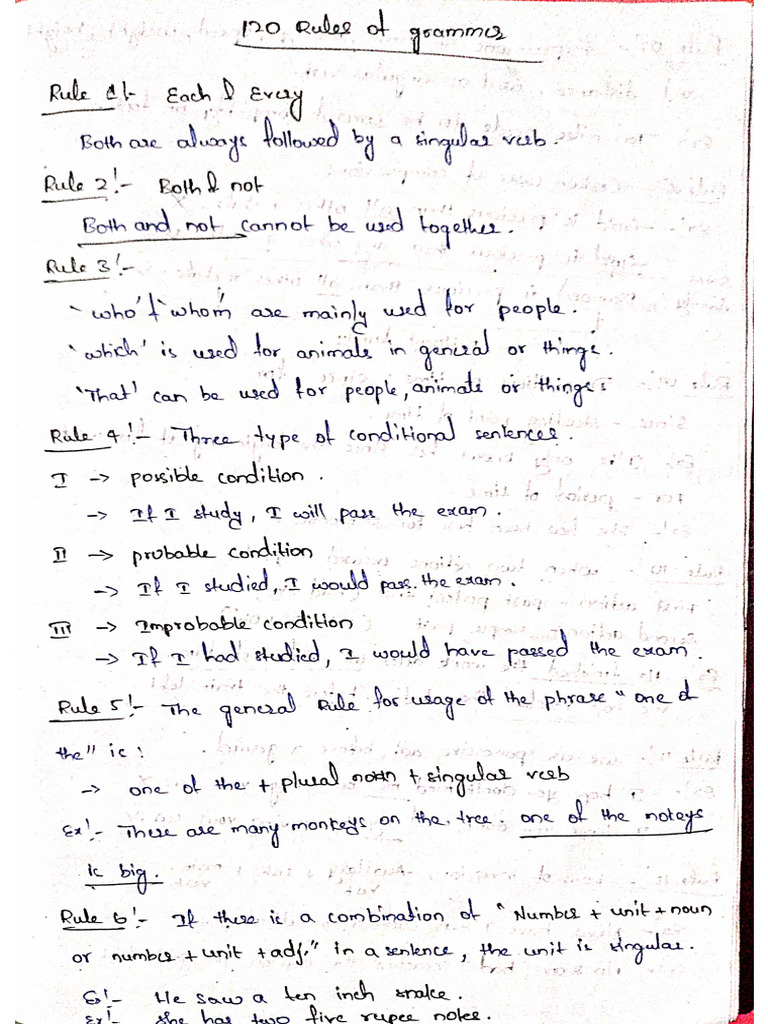 120 Rules of grammer
Rule 1!- Each & Every
Both are always followed by a singular verb.
Rule 2!- Both & not
Both and not cannot be used together.
Rule 3!-
'who' & 'whom' are mainly used for people.
'which' is used for animals in general or things.
'That' can be used for people, animals or things.
Rule 4!- Three type of conditional sentences.
I -> possible condition.
-> If I study, I will pass the exam.
II -> probable condition
-> If I studied, I would pass the exam.
III -> Improbable condition
-> If I had studied, I would have passed the exam.
Rule 5!- The general Rule for usage of the phrase "one of
the" is!
-> one of the + plural noun + singular verb
Ex!- There are many monkeys on the tree. one of the mokeys
is big.
Rule 6!- If there is a combination of "Number + unit + noun
or number + unit + adj." in a sentence, the unit is singular.
Ex!- He saw a ten inch snake.
Ex!- She has two five rupee notes.